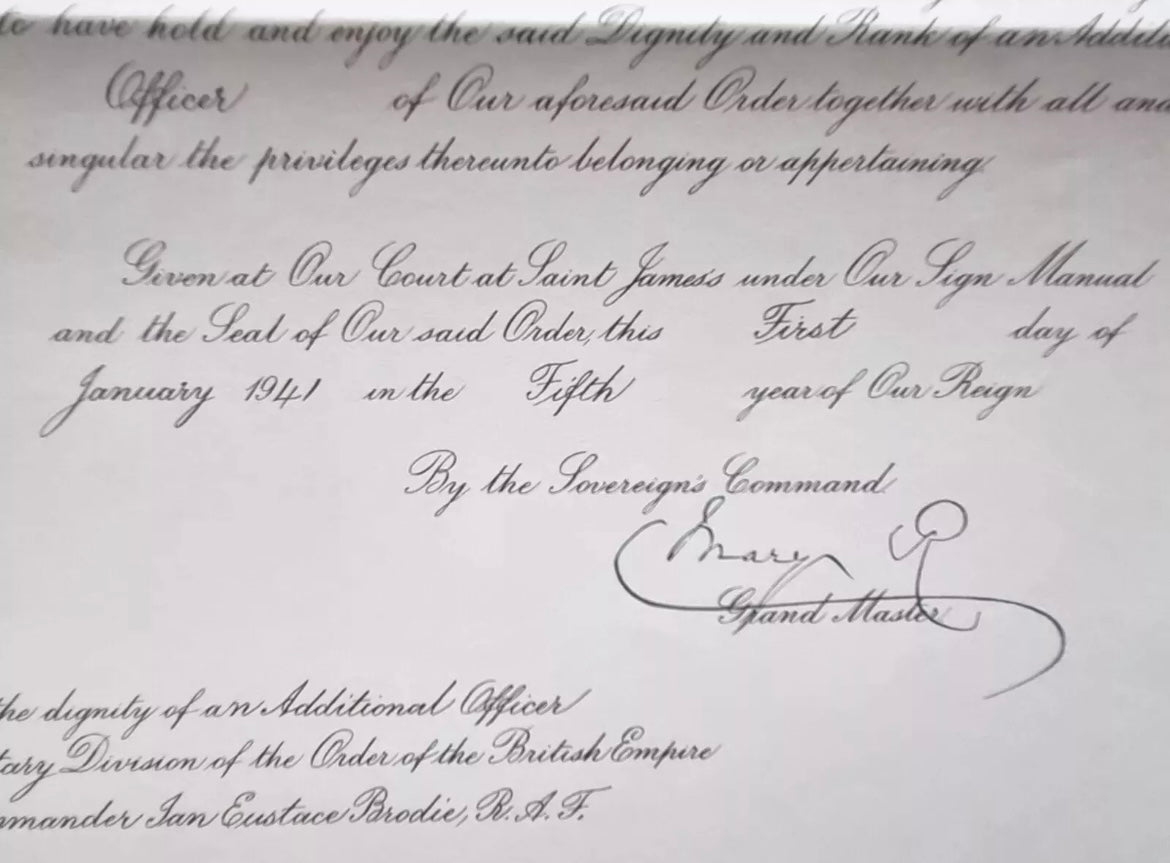 to have hold and enjoy the said Dignity and Rank of an Additio
Officer of Our aforesaid Order together with all and
singular the privileges thereunto belonging or appertaining.
Given at Our Court at Saint James's under Our Sign Manual
and the Seal of Our said Order, this First day of
January 1941 in the Fifth year of Our Reign
By the Sovereign's Command
Mary R
Grand Master
the dignity of an Additional Officer
tary Division of the Order of the British Empire
mmander Ian Eustace Brodie, R.A.F.